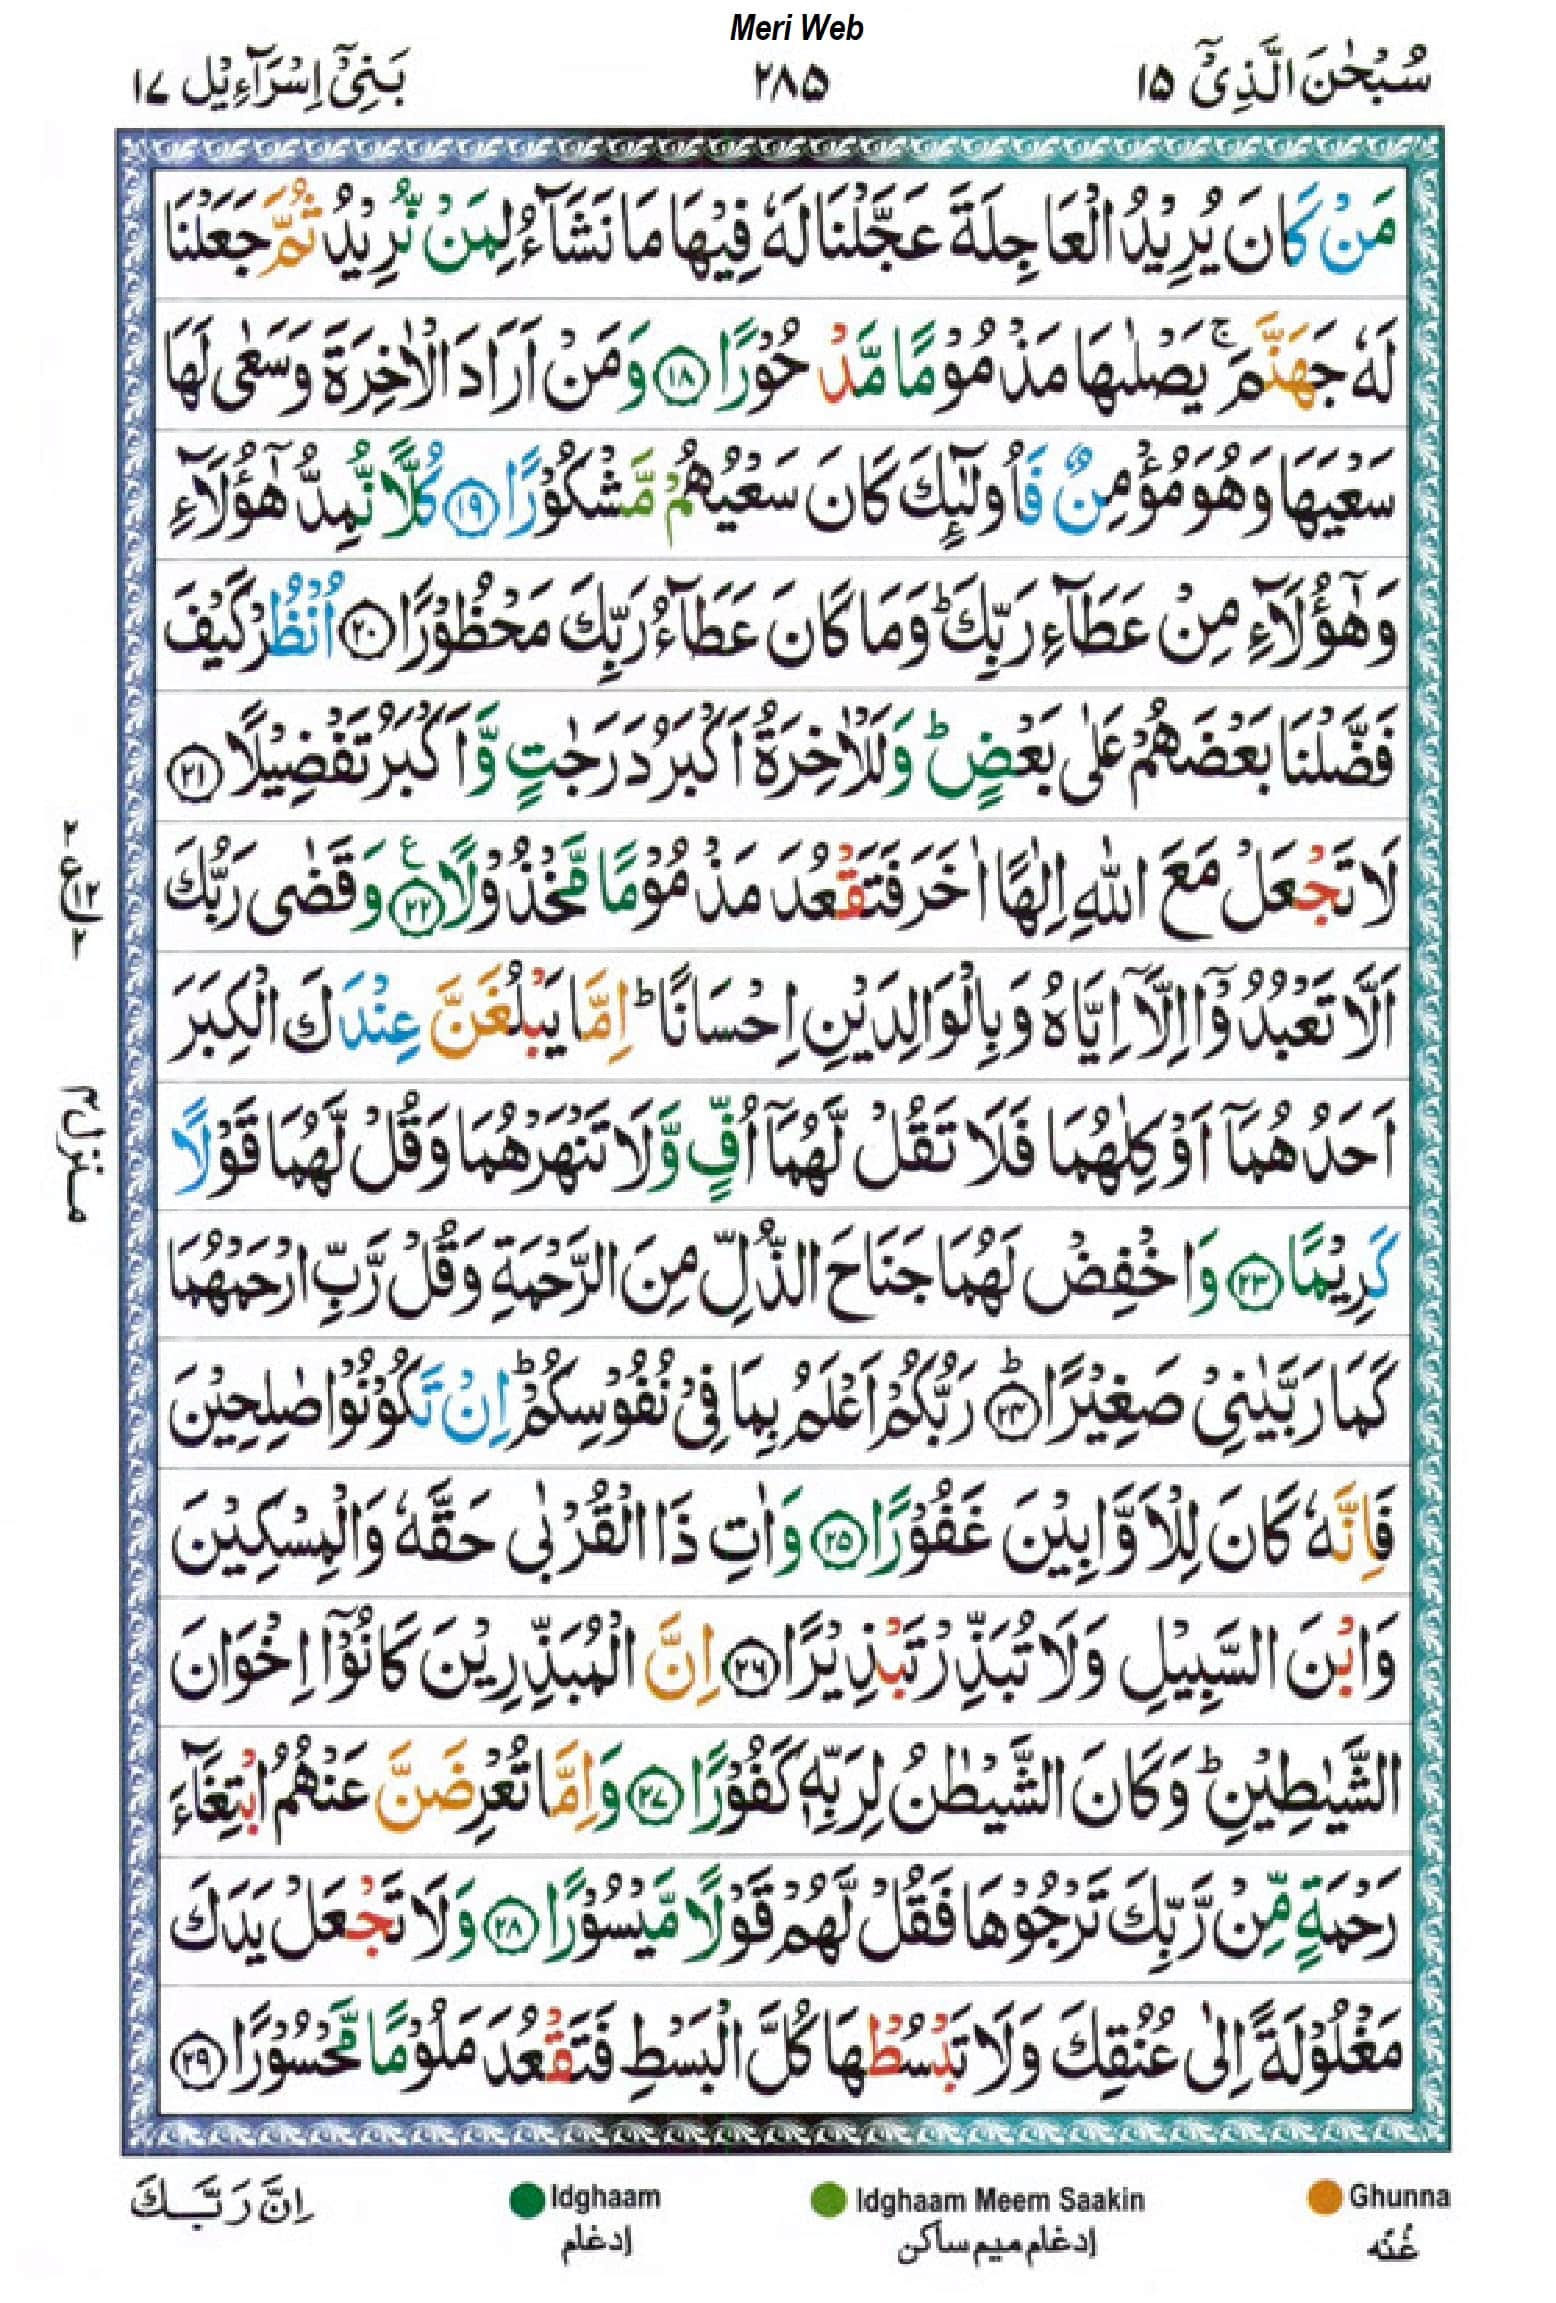 Meri Web
سُبْحٰنَ الَّذِیْۤ ۱۵
۲۸۵
بَنِیْۤ اِسْرَآءِیْل ۱۷
مَنْ كَانَ یُرِیْدُ الْعَاجِلَةَ عَجَّلْنَا لَهٗ فِیْهَا مَا نَشَآءُ لِمَنْ نُّرِیْدُ ثُمَّ جَعَلْنَا
لَهٗ جَهَنَّمَ ۚ یَصْلٰىهَا مَذْمُوْمًا مَّدْحُوْرًا ۱۸ وَمَنْ اَرَادَ الْاٰخِرَةَ وَسَعٰی لَهَا
سَعْیَهَا وَهُوَ مُؤْمِنٌ فَاُولٰٓىِٕكَ كَانَ سَعْیُهُمْ مَّشْكُوْرًا ۱۹ كُلًّا نُّمِدُّ هٰۤؤُلَآءِ
وَهٰۤؤُلَآءِ مِنْ عَطَآءِ رَبِّكَ ؕ وَمَا كَانَ عَطَآءُ رَبِّكَ مَحْظُوْرًا ۲۰ اُنْظُرْ كَیْفَ
فَضَّلْنَا بَعْضَهُمْ عَلٰی بَعْضٍ ؕ وَلَلْاٰخِرَةُ اَكْبَرُ دَرَجٰتٍ وَّاَكْبَرُ تَفْضِیْلًا ۲۱
لَا تَجْعَلْ مَعَ اللّٰهِ اِلٰهًا اٰخَرَ فَتَقْعُدَ مَذْمُوْمًا مَّخْذُوْلًا ۲۲ ع وَقَضٰی رَبُّكَ
۲ ع ۱۲ ۲
اَلَّا تَعْبُدُوْۤا اِلَّاۤ اِیَّاهُ وَبِالْوَالِدَیْنِ اِحْسَانًا ؕ اِمَّا یَبْلُغَنَّ عِنْدَكَ الْكِبَرَ
اَحَدُهُمَاۤ اَوْ كِلٰهُمَا فَلَا تَقُلْ لَّهُمَاۤ اُفٍّ وَّلَا تَنْهَرْهُمَا وَقُلْ لَّهُمَا قَوْلًا
منزل ۴
كَرِیْمًا ۲۳ وَاخْفِضْ لَهُمَا جَنَاحَ الذُّلِّ مِنَ الرَّحْمَةِ وَقُلْ رَّبِّ ارْحَمْهُمَا
كَمَا رَبَّیٰنِیْ صَغِیْرًا ؕ ۲۴ رَبُّكُمْ اَعْلَمُ بِمَا فِیْ نُفُوْسِكُمْ ؕ اِنْ تَكُوْنُوْا صٰلِحِیْنَ
فَاِنَّهٗ كَانَ لِلْاَوَّابِیْنَ غَفُوْرًا ۲۵ وَاٰتِ ذَا الْقُرْبٰی حَقَّهٗ وَالْمِسْكِیْنَ
وَابْنَ السَّبِیْلِ وَلَا تُبَذِّرْ تَبْذِیْرًا ۲۶ اِنَّ الْمُبَذِّرِیْنَ كَانُوْۤا اِخْوَانَ
الشَّیٰطِیْنِ ؕ وَكَانَ الشَّیْطٰنُ لِرَبِّهٖ كَفُوْرًا ۲۷ وَاِمَّا تُعْرِضَنَّ عَنْهُمُ ابْتِغَآءَ
رَحْمَةٍ مِّنْ رَّبِّكَ تَرْجُوْهَا فَقُلْ لَّهُمْ قَوْلًا مَّیْسُوْرًا ۲۸ وَلَا تَجْعَلْ یَدَكَ
مَغْلُوْلَةً اِلٰی عُنُقِكَ وَلَا تَبْسُطْهَا كُلَّ الْبَسْطِ فَتَقْعُدَ مَلُوْمًا مَّحْسُوْرًا ۲۹
Ghunna
غُنّه
Idghaam Meem Saakin
إدغام میم ساکن
Idghaam
إدغام
اِنَّ رَبَّـكَ